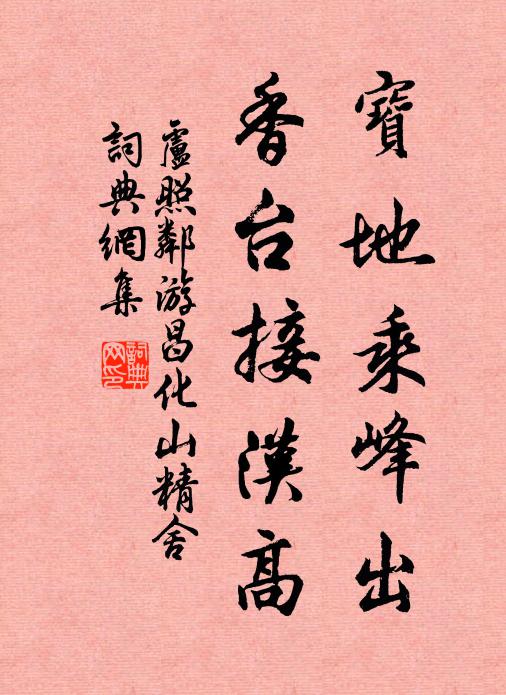 寶地乘峰出
香台接漢高
盧照鄰游昌化山精舍
詞典網集
詞典網印